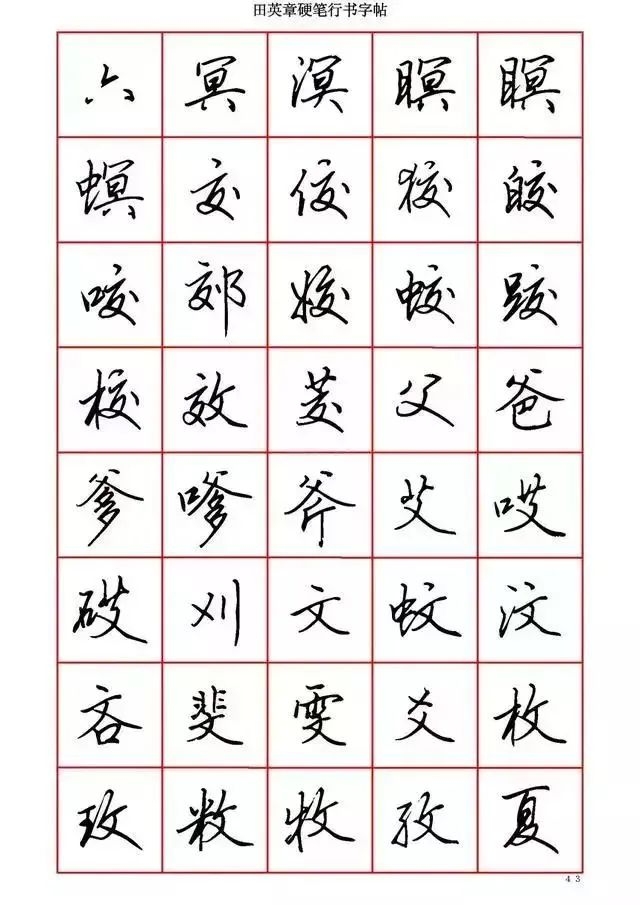 田英章硬笔行书字帖
六 冥 溟 瞑 瞑
螟 交 佼 狡 皎
咬 郊 姣 蛟 跤
校 效 茭 父 爸
爹 嗲 斧 艾 哎
砹 刈 文 蚊 汶
吝 斐 雯 爻 枚
玫 敉 牧 孜 夏
43